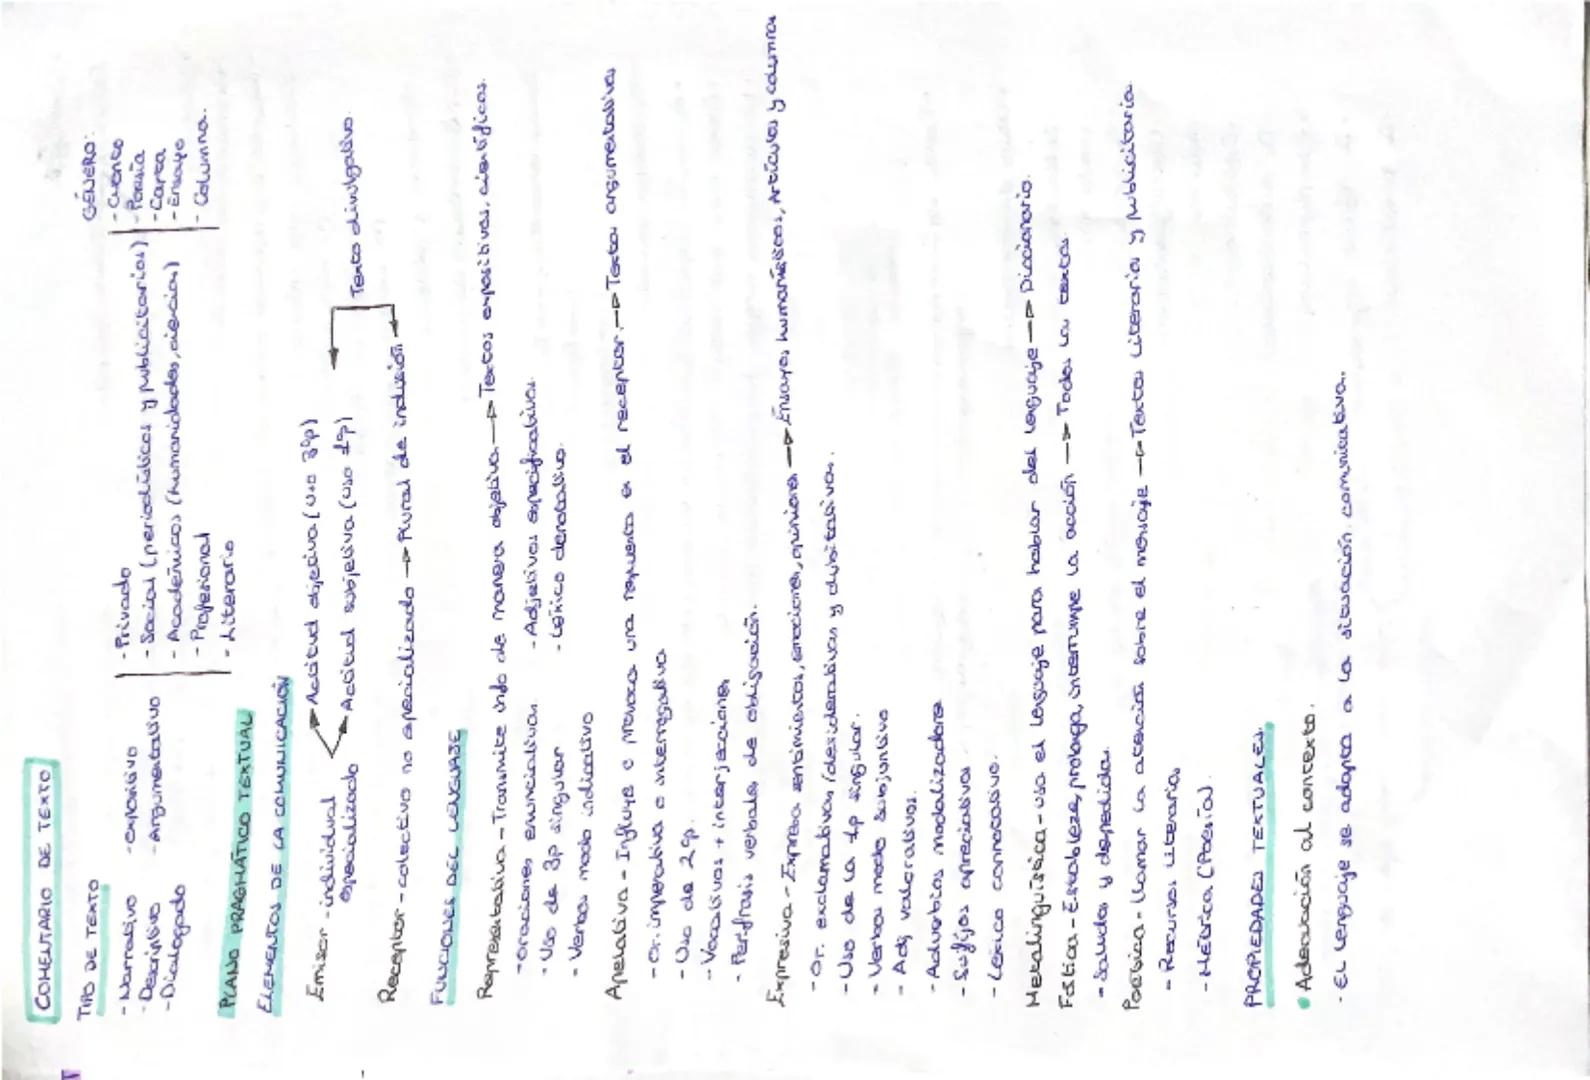 COMENTARIO DE TEXTO
TIPO DE TEXTO
- Narrativo - expositivo
- Descriptivo - Argumentativo
- Dialogado
- Privado
- Social (periodísticos y publicitarios)
- Académicos (humanidades, ciencias)
- Profesional
- Literario
GÉNERO:
- Cuento
- Poesía
- Carta
- Ensayo
- Columna.
PLANO PRAGMÁTICO TEXTUAL
ELEMENTOS DE LA COMUNICACIÓN
Emisor - individual
especializado
Actitud objetiva (uso 3ªp)
Actitud subjetiva (uso 1ªp)
Texto divulgativo.
Receptor - colectivo no especializado → Plural de inclusión
FUNCIONES DEL LENGUAJE
Representativa - Transmite info de manera objetiva. → Textos expositivos, científicos.
- Oraciones enunciativas. - Adjetivos especificativos.
- Uso de 3p singular - Léxico denotativo.
- Verbos modo indicativo
Apelativa - Influye o provoca una respuesta en el receptor. → Textos argumentativos
- Or. imperativa o interrogativa
- Uso de 2ªp.
- Vocativos + interjecciones
- Perífrasis verbales de obligación.
Expresiva - Expresa sentimientos, emociones, opiniones → Ensayos humanísticos, Artículos y columnas
- Or. exclamativas / desiderativas y dubitativas.
- Uso de la 1p singular.
- Verbos modo subjuntivo
- Adj valorativos.
- Adverbios modalizadores
- Sufijos apreciativos
- Léxico connotativo.
Metalingüística - usa el lenguaje para hablar del lenguaje → Diccionario.
Fática - Establece, prolonga, interrumpe la acción → Todos los textos.
- Saludos y despedida.
Poética - Llamar la atención sobre el mensaje → Textos Literarios y publicitarios.
- Recursos Literarios
- Métrica (Poesía)
PROPIEDADES TEXTUALES.
• Adecuación al contexto.
- El lenguaje se adapta a la situación comunicativa.